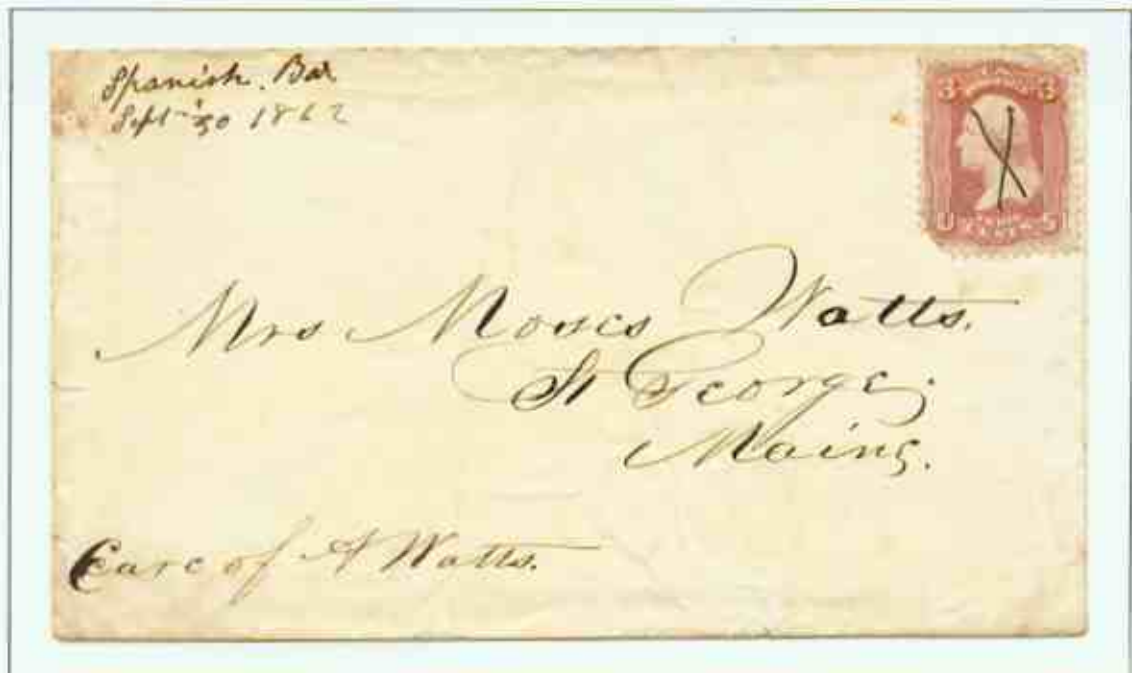 Spanish. Bar
Sept 30 1862
3 3
U S
Mrs Moses Watts.
St George,
Maine.
Care of A Watts.